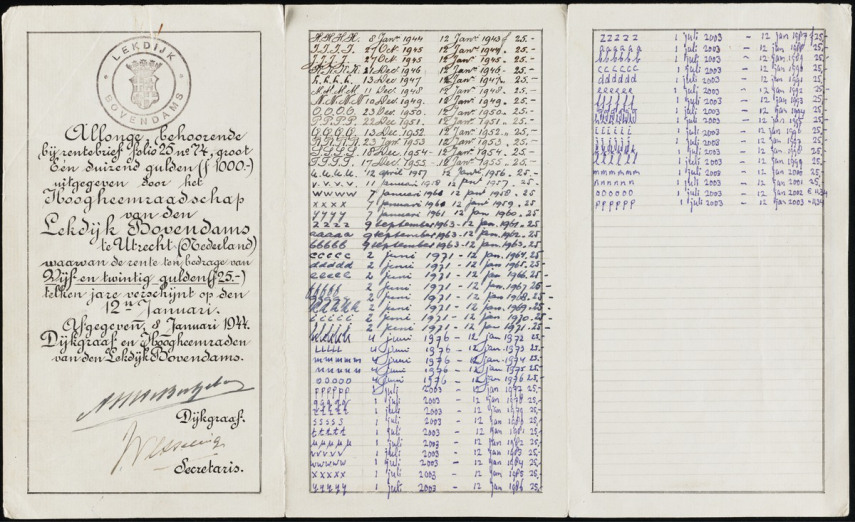 LEKDIJK
BOVENDAMS
Allonge, behoorende
bij rentebrief folio 25 nº 74, groot
Een duizend gulden (ƒ 1000.-)
uitgegeven door het
Hoogheemraadschap
van den
Lekdijk Bovendams
te Utrecht (Nederland)
waarvan de rente ten bedrage van
Vijf en twintig gulden (ƒ 25.-)
telken jare verschijnt op den
12n Januari.
Afgegeven, 8 Januari 1944.
Dijkgraaf en Hoogheemraden
van den Lekdijk Bovendams.
Dijkgraaf.
Secretaris.
H.H.H.H. 8 Janr 1944 12 Janr 1943 ƒ 25.-
I.I.I.I. 27 Oct. 1945 12 Janr 1944. 25.-
J.J.J.J. 27 Oct. 1945 12 Janr 1945. 25.-
K.K.K.K. 21 Dec. 1946 12 Janr 1946. 25.-
L.L.L.L. 13 Dec. 1947 12 Janr 1947. 25.-
M.M.M.M. 11 Dec. 1948 12 Janr 1948. 25.-
N.N.N.N. 10 Dec. 1949. 12 Janr 1949. 25.-
O.O.O.O. 23 Dec. 1950. 12 Janr 1950. 25.-
P.P.P.P. 22 Dec. 1951. 12 Janr 1951. 25.-
Q.Q.Q.Q. 13 Dec. 1952. 12 Janr 1952. 25.-
R.R.R.R. 23 Jan. 1953 12 Janr 1953. 25.-
S.S.S.S. 18 Dec. 1954 12 Janr 1954. 25.-
T.T.T.T. 17 Dec. 1955 12 Janr 1955. 25.-
u.u.u.u. 12 april 1957 12 Januari 1956. 25-
v.v.v.v. 11 januari 1958 12 januari 1957. 25-
wwww 7 januari 1960 12 januari 1958. 25
xxxx 7 januari 1960 12 januari 1959. 25-
yyyy 7 januari 1961 12 januari 1960. 25-
zzzz 9 september 1963 - 12 jan. 1961. 25-
aaaaa 9 september 1963 - 12 jan. 1962. 25-
bbbbb 9 september 1963 - 12 jan. 1963. 25-
ccccc 2 juni 1971 - 12 jan. 1964. 25-
ddddd 2 juni 1971 - 12 jan. 1965. 25-
eeeee 2 juni 1971 - 12 jan. 1966. 25-
fffff 2 juni 1971 - 12 jan. 1967. 25-
ggggg 2 juni 1971 - 12 jan. 1968. 25-
hhhhh 2 juni 1971 - 12 jan. 1969. 25-
iiiii 2 juni 1971 - 12 jan. 1970. 25-
2 juni 1971 - 12 jan. 1971. 25-
kkkkk 4 juni 1976 - 12 jan 1972 25-
lllll 4 juni 1976 - 12 jan 1973 25-
mmmmm 4 juni 1976 - 12 jan 1974 25-
nnnnn 4 juni 1976 - 12 jan 1975 25-
ooooo 4 juni 1976 - 12 jan 1976 25-
ppppp 1 juli 2003 - 12 jan 1977 25,-
qqqqq 1 juli 2003 - 12 jan 1978 25,-
rrrrr 1 juli 2003 - 12 jan 1979 25,-
sssss 1 juli 2003 - 12 jan 1980 25,-
ttttt 1 juli 2003 - 12 jan 1981 25,-
uuuuu 1 juli 2003 - 12 jan 1982 25,-
vvvvv 1 juli 2003 - 12 jan 1983 25,-
wwwww 1 juli 2003 - 12 jan 1984 25,-
xxxxx 1 juli 2003 - 12 jan 1985 25,-
yyyyy 1 juli 2003 - 12 jan 1986 25,-
zzzzz 1 juli 2003 - 12 jan 1987 25,-
aaaaaa 1 juli 2003 - 12 jan 1988 25,-
bbbbbb 1 juli 2003 - 12 jan 1989 25,-
cccccc 1 juli 2003 - 12 jan 1990 25,-
dddddd 1 juli 2003 - 12 jan 1991 25,-
eeeeee 1 juli 2003 - 12 jan 1992 25,-
ffffff 1 juli 2003 - 12 jan 1993 25,-
gggggg 1 juli 2003 - 12 jan 1994 25,-
hhhhhh 1 juli 2003 - 12 jan 1995 25,-
iiiiii 1 juli 2003 - 12 jan 1996 25,-
jjjjjj 1 juli 2003 - 12 jan 1997 25,-
kkkkkk 1 juli 2003 - 12 jan 1998 25,-
llllll 1 juli 2003 - 12 jan 1999 25,-
mmmmmm 1 juli 2003 - 12 jan 2000 25,-
nnnnnn 1 juli 2003 - 12 jan 2001 25,-
oooooo 1 juli 2003 - 12 jan 2002 € 11,34
pppppp 1 juli 2003 - 12 jan 2003 € 11,34